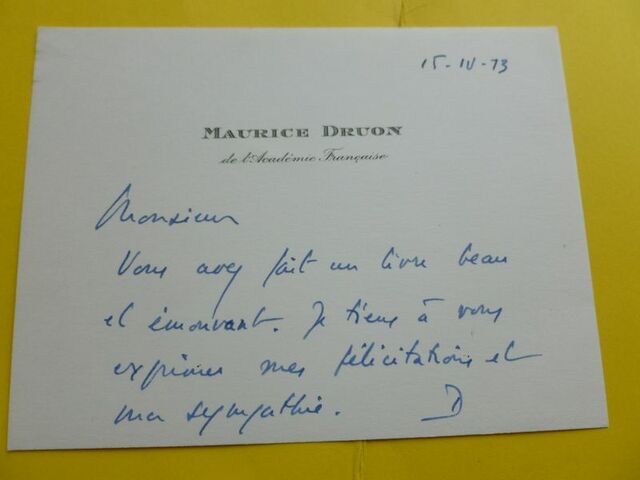 15-IV-73
MAURICE DRUON
de l'Académie Française
Monsieur
Vous avez fait un livre beau
et émouvant. Je tiens à vous
exprimer mes félicitations et
ma sympathie. D